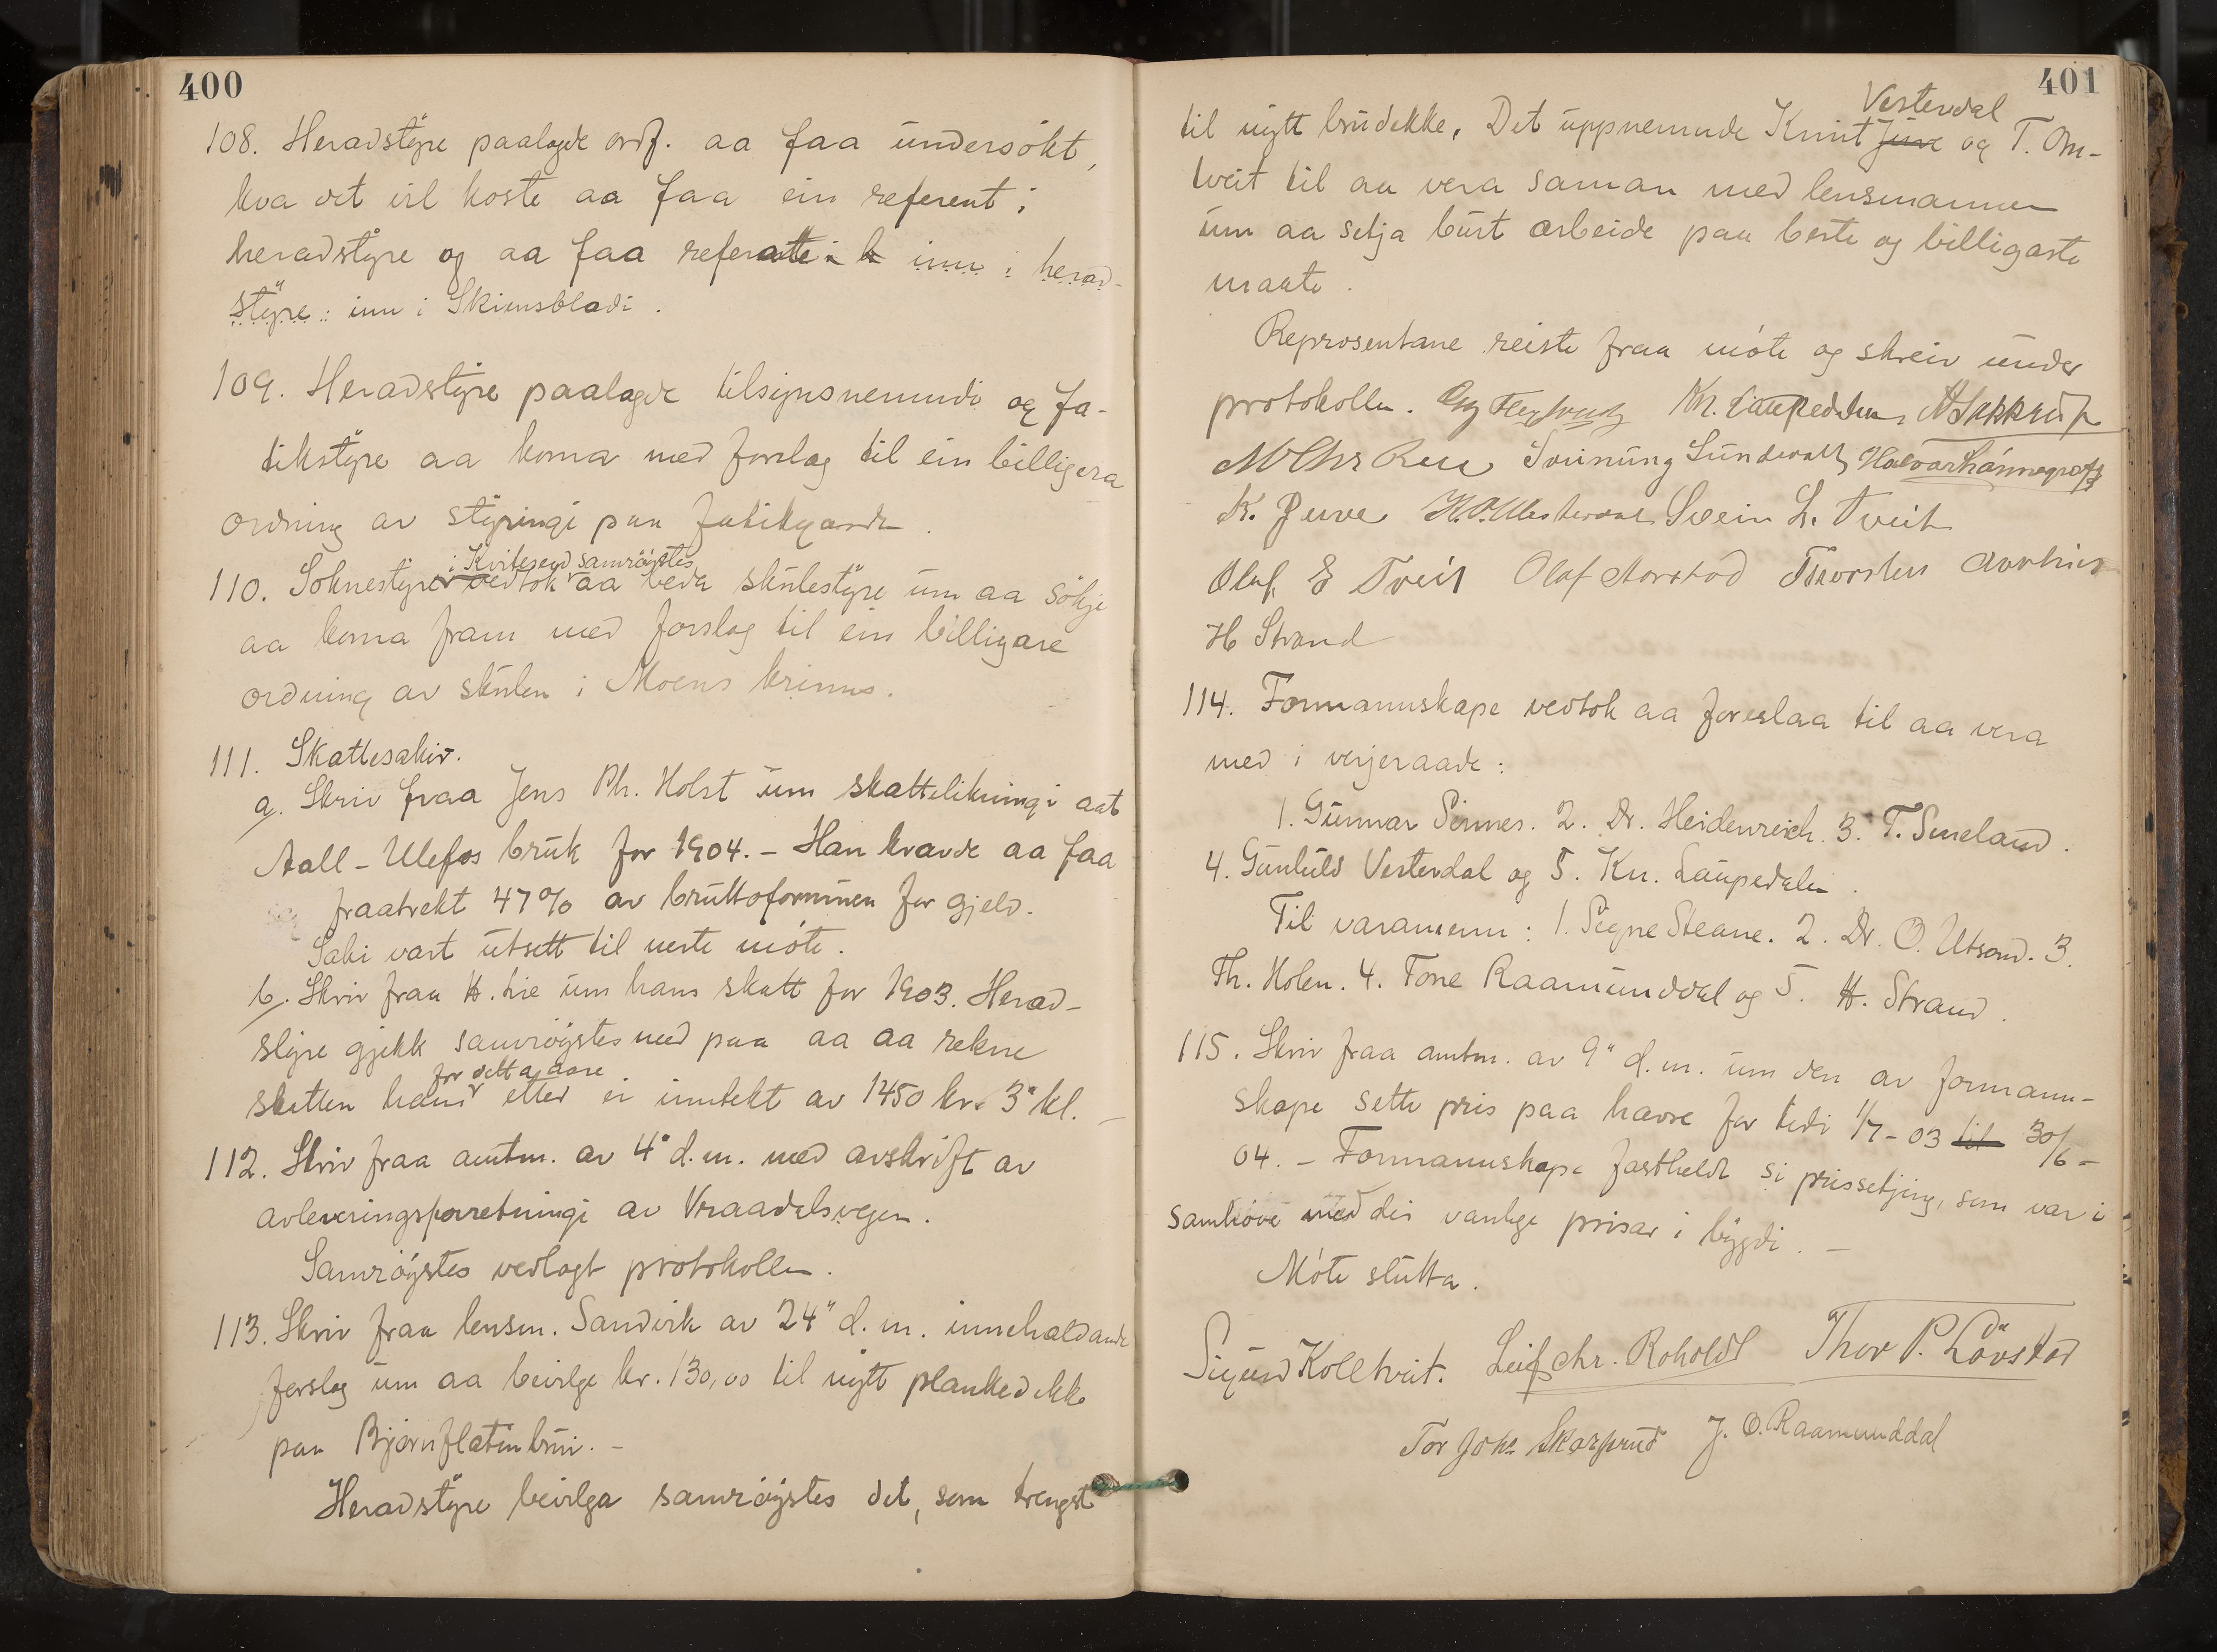 400
108. Heradstyre paalagde ordf. aa faa undersøkt,
kva det vil koste aa faa ein referent i
heradstyre og aa faa referatte inn i herad-
styre inn i Skiensbladi.
109. Heradstyre paalagde tilsynsnemndi og fa-
tikstyre aa koma med forslag til ein billigera
ordning av styringi paa fatikgarde.
i Kviteseid samrøystes
110. Soknestyre vedtok aa beda skulestyre um aa søkje
aa koma fram med forslag til ein billigare
ordning av skulen i Moens krinns.
111. Skattesakir.
a. Skriv fraa Jens Ph. Holst um skattelikningi aat
Aall-Ulefos bruk for 1904. – Han kravde aa faa
fraatrekt 47% av bruttoformuen for gjeld.
Saki vart utsett til neste møte.
b. Skriv fraa H. Lie um hans skatt for 1903. Herad-
styre gjekk samrøystes med paa aa aa rekne
for detta aare
skatten hans etter ei inntekt av 1450 kr. 3" kl. –
112. Skriv fraa amtm. av 4" d.m. med avskrift av
avleveringsforretningi av Vraadalsvegen.
Samrøystes vedlagt protokollen.
113. Skriv fraa lensm. Sandvik av 24" d.m. innehaldande
forslag um aa beivilge kr. 130,00 til nytt plankedekke
paa Bjørnflatin brui. –
Heradstyre beivilga samrøystes det, som trengst
401
Vesterdal
til nytt brudekke. Det uppnemnde Knut Juve og T. Om-
tveit til aa vera saman med lensmannen
um aa setja burt arbeide paa beste og billigaste
maate.
Representane reiste fraa møte og skreiv under
protokollen. Kn. Laupedalen
Sveinung Sundvall
K. Juve Svein L. Tveit
Olaf E Tveit Olaf Aarstod Thorsten
H Strand
114. Formannskape vedtok aa foreslaa til aa vera
med i verjeraade:
1. Gunnar Sinnes. 2. Dr. Heidenreich. 3. T. Smeland.
4. Gunhild Vesterdal og 5. Kn. Laupedalen.
Til varamenn: 1. Signe Steane. 2. Dr. O. Utsond. 3.
Th. Holen. 4. Tone Raamunddal og 5. H. Strand.
115. Skriv fraa amtm. av 9" d.m. um den av formann-
skape sette pris paa havre for tidi 1/7-03 til 30/6-
04. – Formannskape fastheldt si prissetjing, som var i
samhøve med dei vanlege prisar i bygdi. –
Møte slutta.
Sigurd Kolltveit. Leif Chr. Roholdt Thor P. Lövstad
Tor Johs Skarprud J. O. Raamunddal